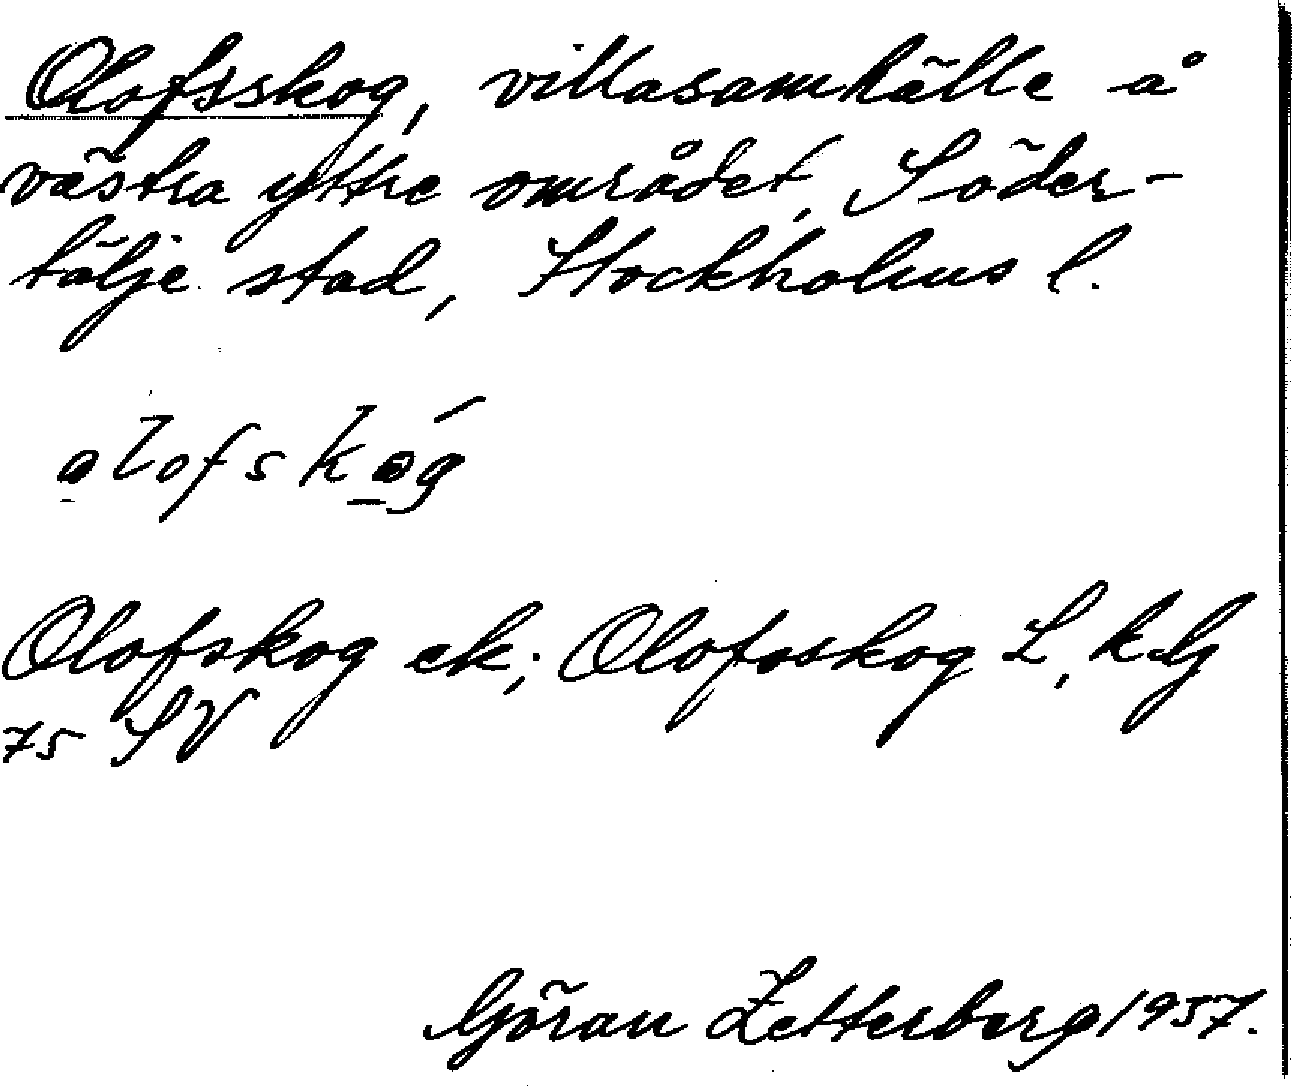 Olofsskog, villasamhälle å
västra yttre området, Söder-
tälje stad, Stockholms l.
olofskóg
Olofskog ek; Olofsskog L, kbg
75 SV
Göran Zetterberg 1957.